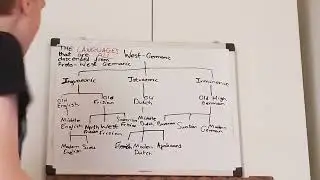 THE LANGUAGES
that are ALL
descended from
Proto-West Germanic
West-Germanic
Ingvaeonic Istvaeonic Irminonic
Old English Old Frisian Old Dutch Old High German
Middle English North Frisian West Frisian Saterland Frisian Middle Dutch Bavarian Swabian Modern German
Modern English Scots Modern Dutch Afrikaans